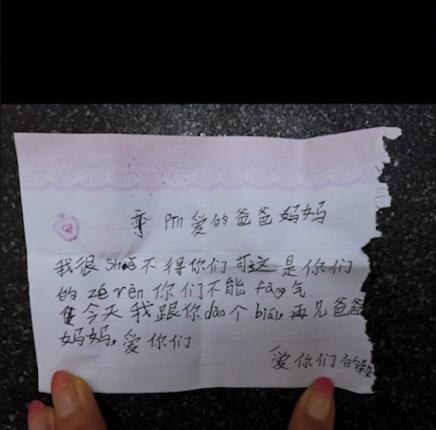 pin爱的爸爸妈妈
我很 不得你们 可这是你们
的 zé rèn 你们不能 fàng 气
今天我跟你 dào 个 bié, 再见爸爸
妈妈, 爱你们
爱你们的